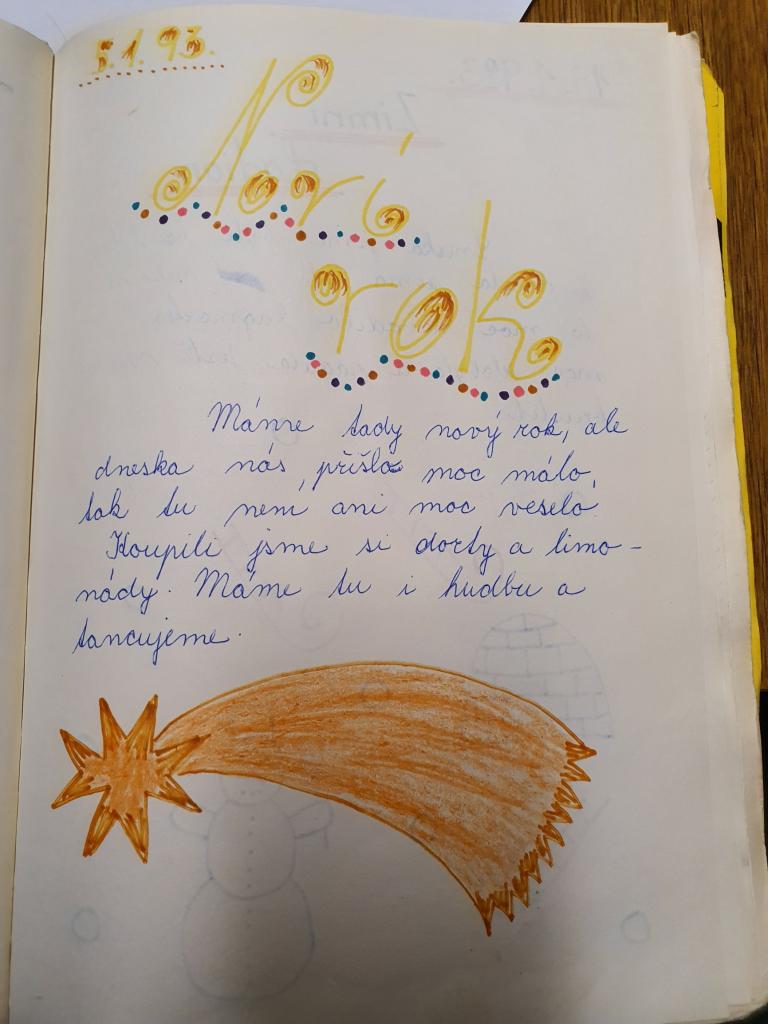 5.1.93.
Noví
rok
Máme tady nový rok, ale
dneska nás přišlo moc málo,
tak tu není ani moc veselo.
Koupili jsme si dorty a limo-
nády. Máme tu i hudbu a
tancujeme.